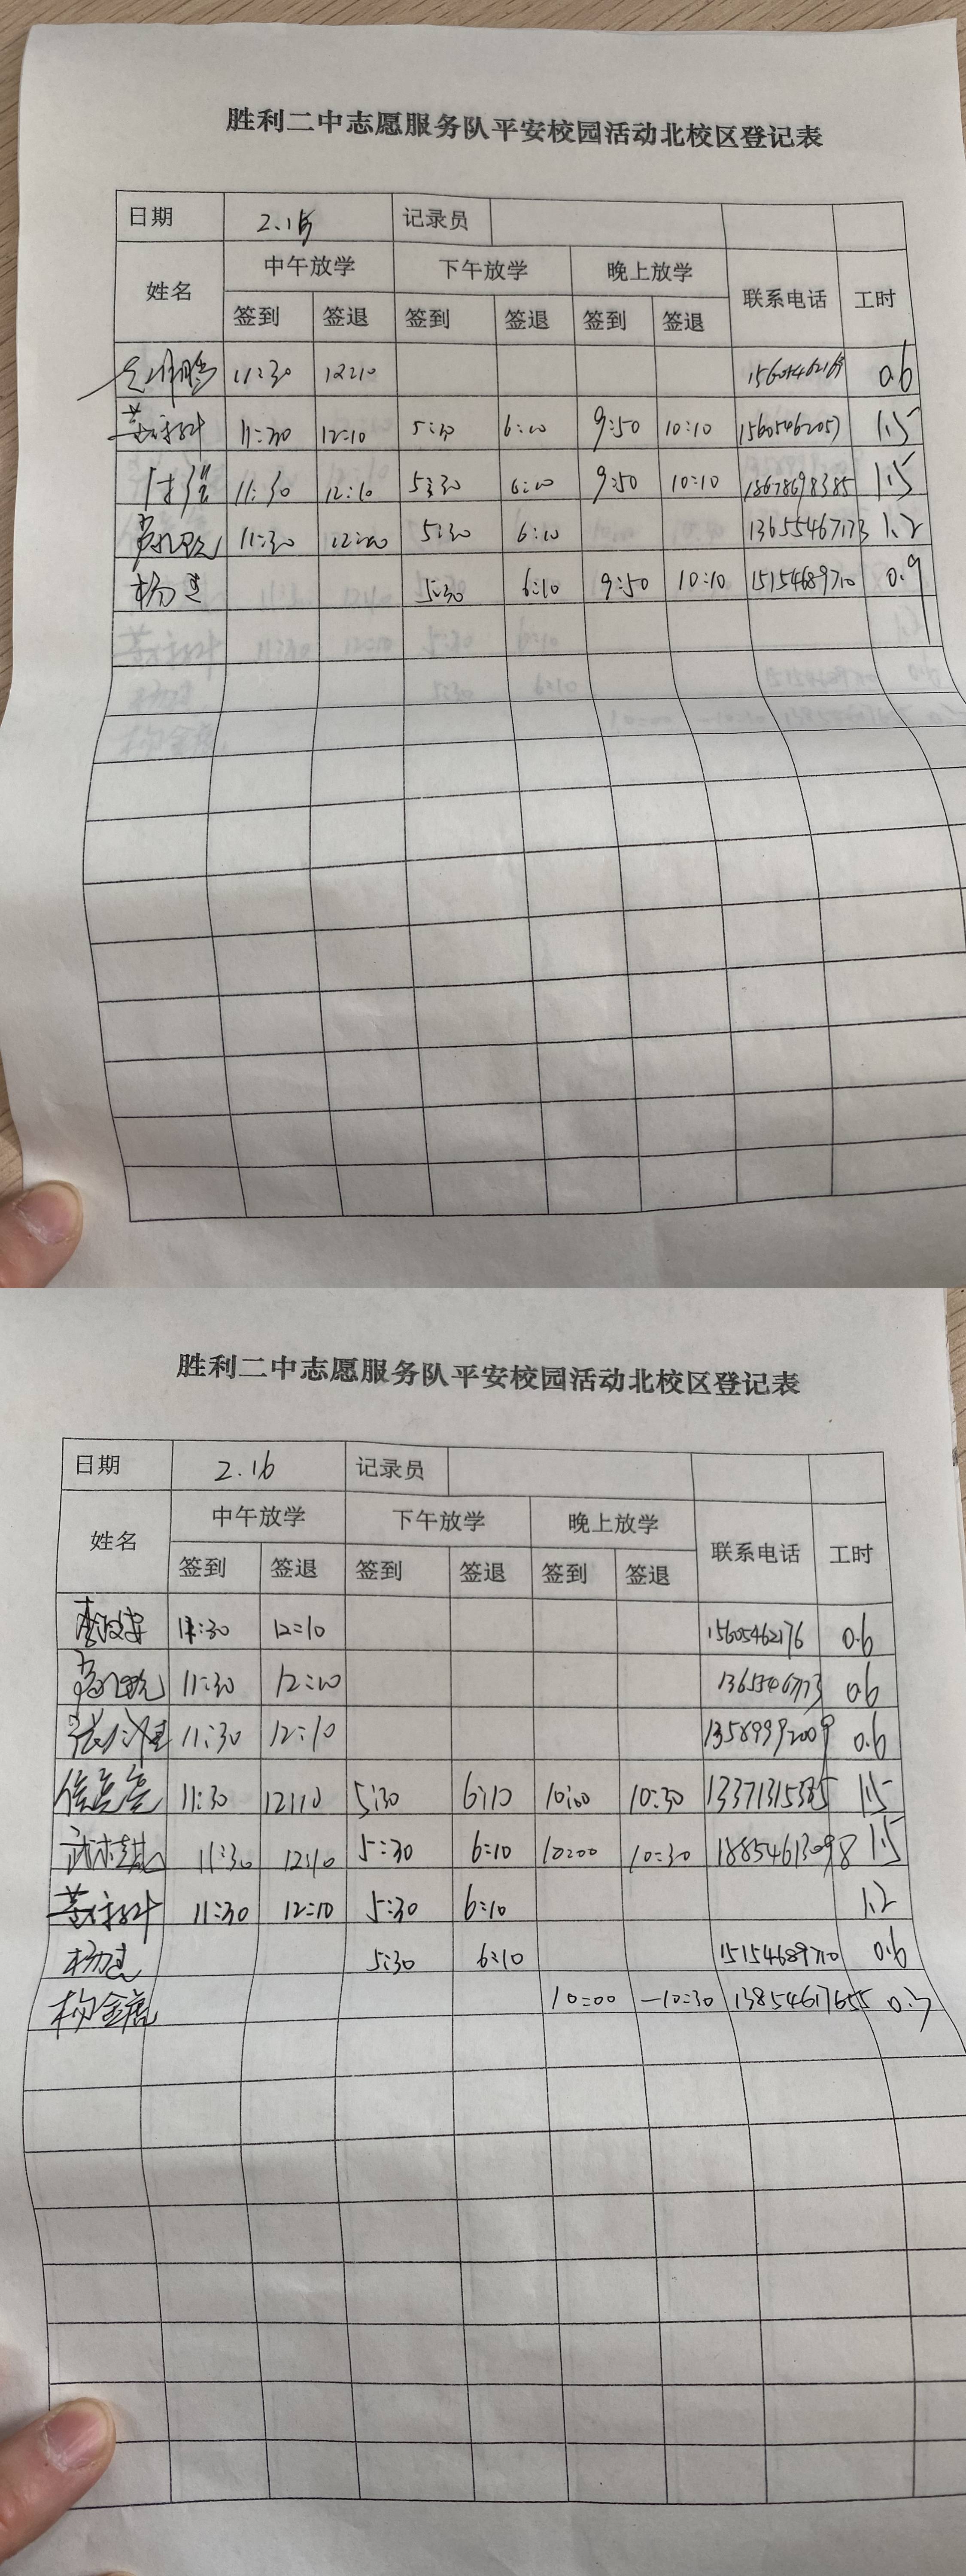 胜利二中志愿服务队平安校园活动北校区登记表
日期 2.15 记录员
姓名 中午放学 下午放学 晚上放学 联系电话 工时
签到 签退 签到 签退 签到 签退
11:30 12:10 0.6
11:30 12:10 5:30 6:10 9:50 10:10 15605462057 1.5
付强 11:30 12:10 5:30 6:10 9:50 10:10 18678698385 1.5
11:30 12:10 5:30 6:10 13655467173 1.2
杨建 5:30 6:10 9:50 10:10 15154689710 0.9
胜利二中志愿服务队平安校园活动北校区登记表
日期 2.16 记录员
姓名 中午放学 下午放学 晚上放学 联系电话 工时
签到 签退 签到 签退 签到 签退
11:30 12:10 15605462176 0.6
11:30 12:10 0.6
11:30 12:10 13589992009 0.6
11:30 12:10 5:30 6:10 10:00 10:30 13371315385 1.5
11:30 12:10 5:30 6:10 10:00 10:30 18854613098 1.5
11:30 12:10 5:30 6:10 1.2
杨建 5:30 6:10 15154689710 0.6
10:00 —10:30 13854617655 0.3